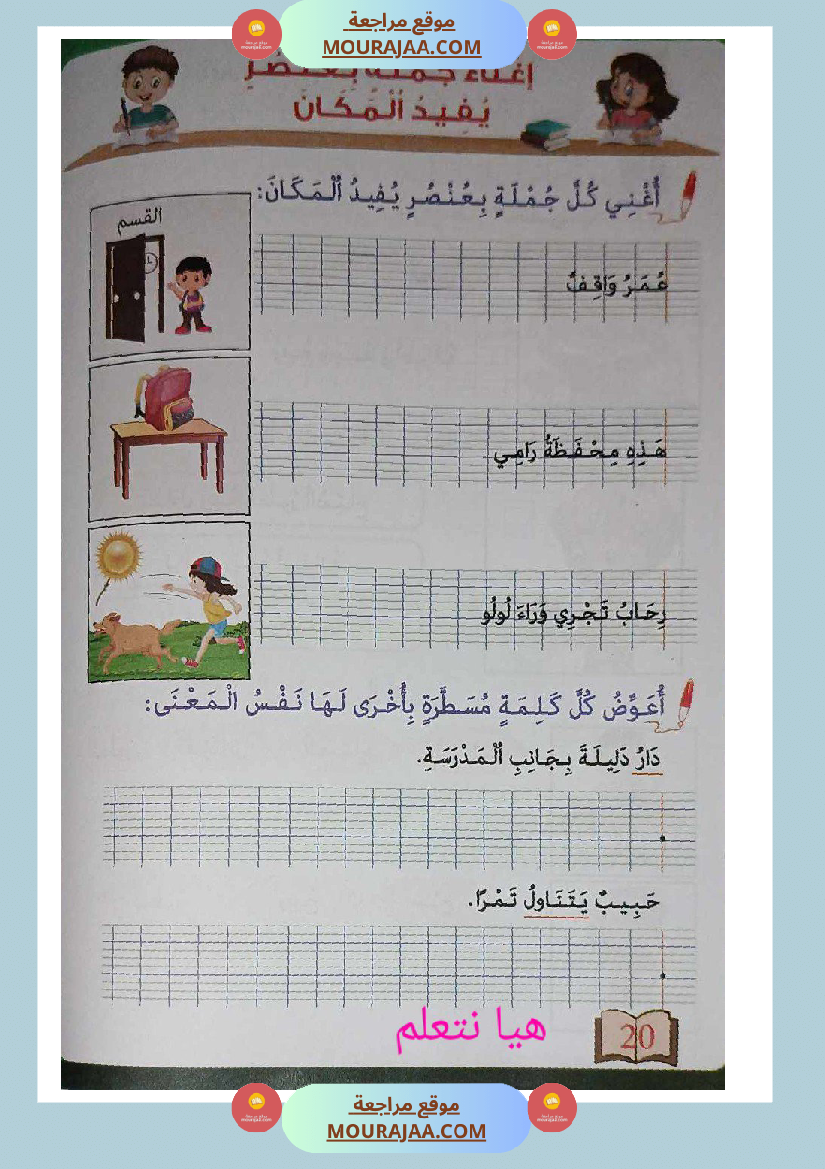 موقع مراجعة
MOURAJAA.COM
إغناء جملة بعنصر
يُفِيدُ ٱلْمَكَانَ
أُغْنِي كُلَّ جُمْلَةٍ بِعُنْصُرٍ يُفِيدُ ٱلْمَكَانَ:
القسم
عُمَرُ وَاقِفٌ
هَذِهِ مِحْفَظَةُ رَامِي
رِحَابُ تَجْرِي وَرَاءَ لُولُو
أُعَوِّضُ كُلَّ كَلِمَةٍ مُسَطَّرَةٍ بِأُخْرَى لَهَا نَفْسُ الْمَعْنَى:
دَارُ دَلِيلَةَ بِجَانِبِ ٱلْمَدْرَسَةِ.
حَبِيبٌ يَتَنَاوَلُ تَمْرًا.
هيا نتعلم
20
موقع مراجعة
MOURAJAA.COM